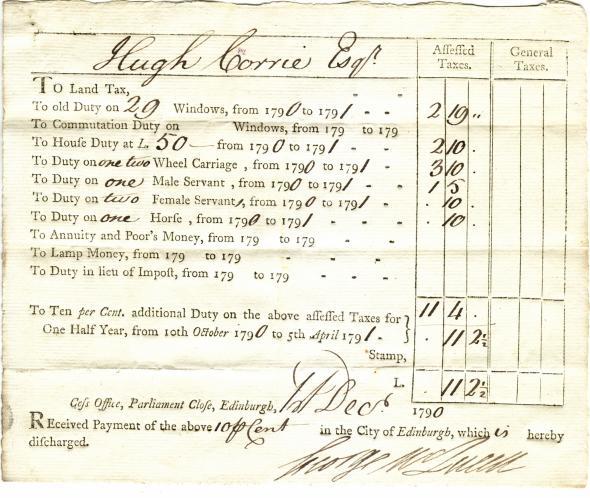 Hugh Corrie Esqr.
Assessed Taxes. General Taxes.
To Land Tax,
To old Duty on 29 Windows, from 1790 to 1791 2 19 "
To Commutation Duty on Windows, from 179 to 179
To House Duty at L. 50 — from 1790 to 1791 2 10 .
To Duty on one two Wheel Carriage , from 1790 to 1791 3 10 .
To Duty on one Male Servant , from 1790 to 1791 1 5 .
To Duty on two Female Servants, from 1790 to 1791 . 10 .
To Duty on one Horse , from 1790 to 1791 . 10 .
To Annuity and Poor's Money, from 179 to 179
To Lamp Money, from 179 to 179
To Duty in lieu of Impost, from 179 to 179
11 4 .
To Ten per Cent. additional Duty on the above assessed Taxes for
One Half Year, from 10th October 1790 to 5th April 1791 . . 11 2½
Stamp,
L. . 11 2½
Cess Office, Parliament Close, Edinburgh, 1st Decr. 1790
Received Payment of the above 10 p Cent in the City of Edinburgh, which is hereby
discharged.
George